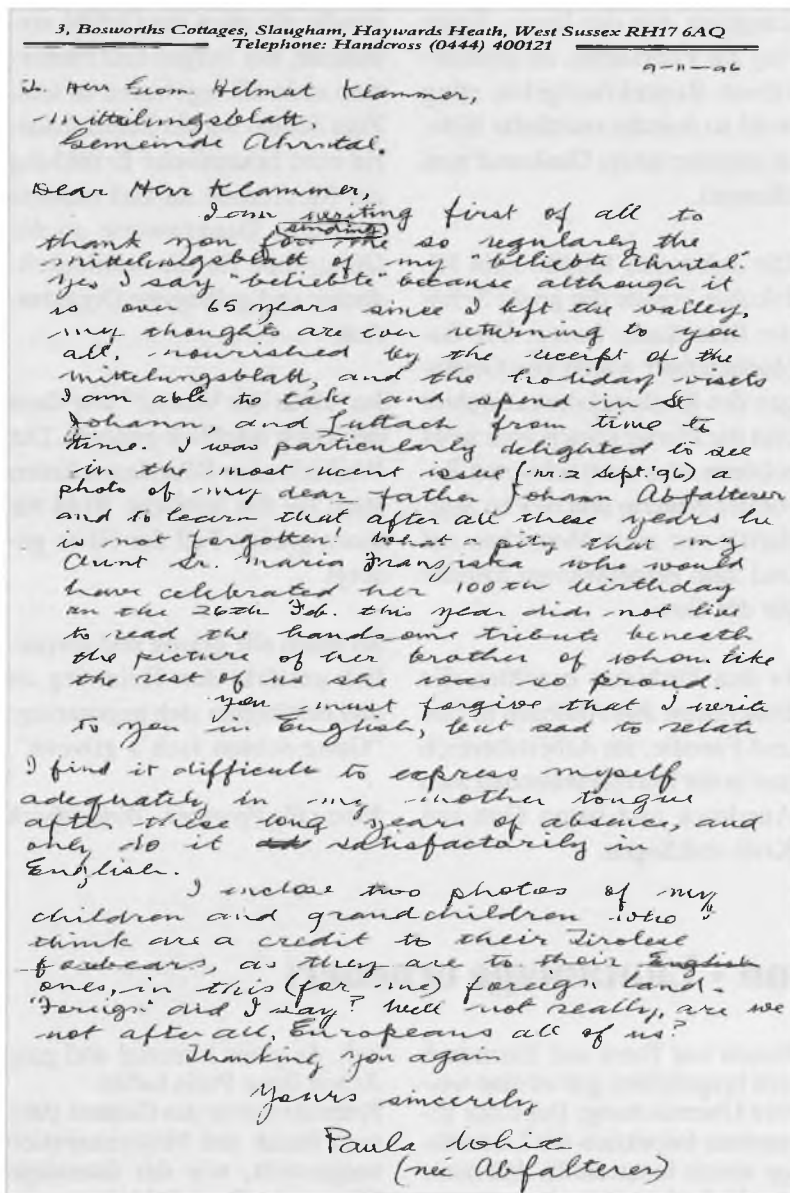 3, Bosworths Cottages, Slaugham, Haywards Heath, West Sussex RH17 6AQ
Telephone: Handcross (0444) 400121
9-11-96
To Herr Geom. Helmut Klammer,
Mitteilungsblatt,
Gemeinde Ahrntal.
Dear Herr Klammer,
I am writing first of all to
(sending)
thank you for me so regularly the
mittelungsblatt of my "beliebte Ahrntal".
Yes I say "beliebte" because although it
is over 65 years since I left the valley,
my thoughts are ever returning to you
all, nourished by the receipt of the
mittelungsblatt, and the holiday visits
I am able to take and spend in St
Johann, and Luttach from time to
time. I was particularly delighted to see
in the most recent issue (nr 2 Sept. '96) a
photo of my dear father Johann Abfalterer
and to learn that after all these years he
is not forgotten. What a pity that my
Aunt Sr. Maria Franziska who would
have celebrated her 100th birthday
on the 26th Feb. this year did not live
to read the handsome tribute beneath
the picture of her brother of whom like
the rest of us she was so proud.
You must forgive that I write
to you in English, but sad to relate
I find it difficult to express myself
adequately in my mother tongue
after these long years of absence, and
only do it satisfactorily in
English.
I inclose two photos of my
children and grandchildren who I
think are a credit to their Tirolese
forbears, as they are to their English
ones, in this (for me) foreign land.
"Foreign" did I say? Well not really, are we
not after all, Europeans all of us?
Thanking you again
Yours sincerely
Paula White
(neé Abfalterer)